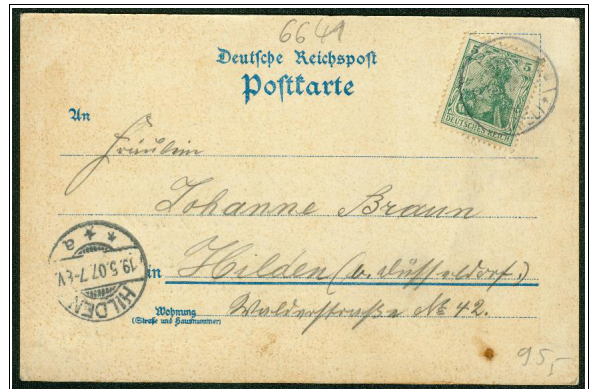 6641
Deutsche Reichspost
Postkarte
5 5
DEUTSCHES REICH
An
Fräulein
Johanne Braun
in Hilden (b. Düsseldorf.)
Wohnung
(Straße und Hausnummer)
Walderstraße № 42.
HILDEN
19.5.07.7-8V.
* * a
95,-